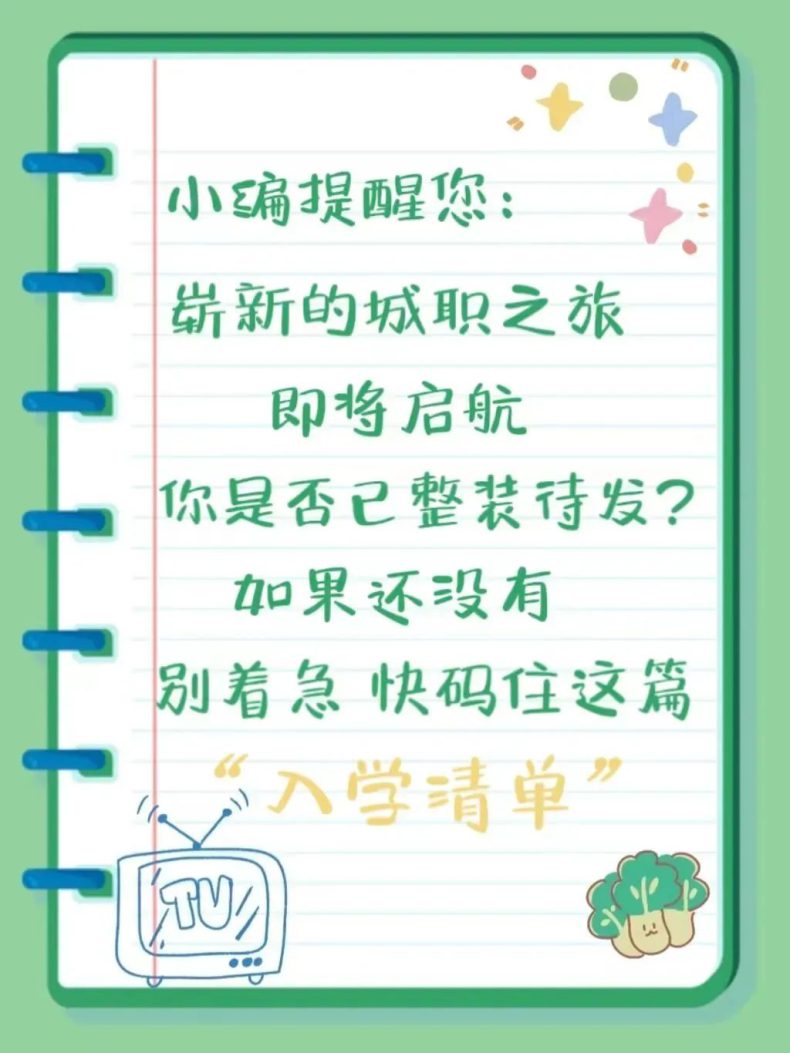 小编提醒您：
崭新的城职之旅
即将启航
你是否已整装待发？
如果还没有
别着急 快码住这篇
“入学清单”
TV